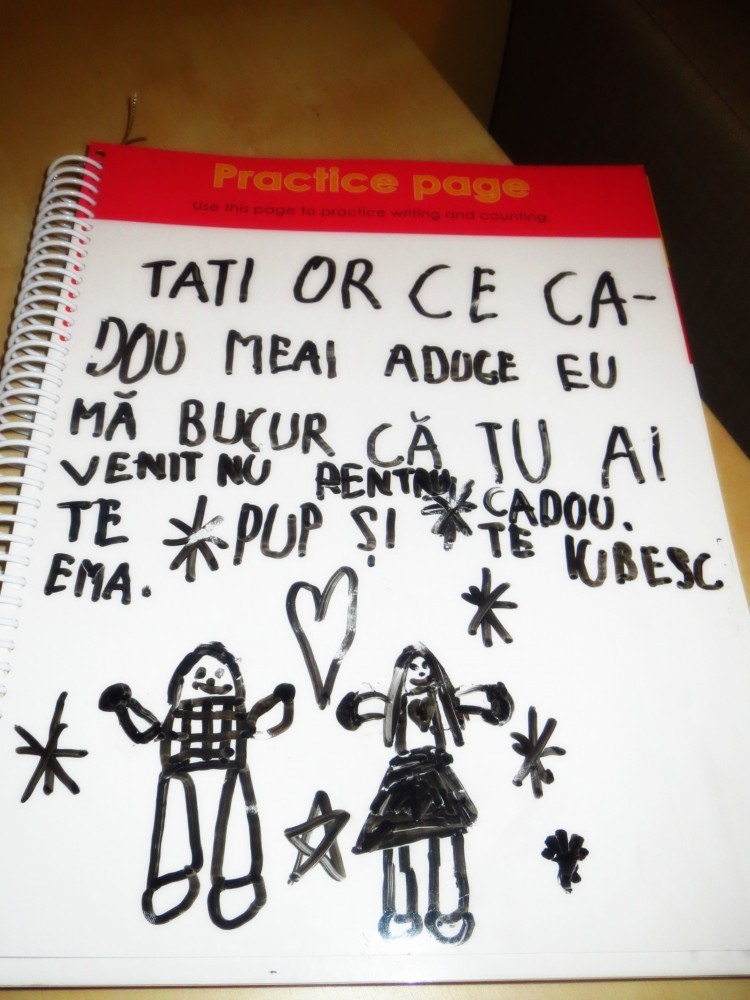 Practice page
Use this page to practice writing and counting.
TATI OR CE CA-
DOU MEAI ADUGE EU
MĂ BUCUR CĂ TU AI
VENIT NU PENTRU CADOU.
TE PUP ȘI TE IUBESC
EMA.